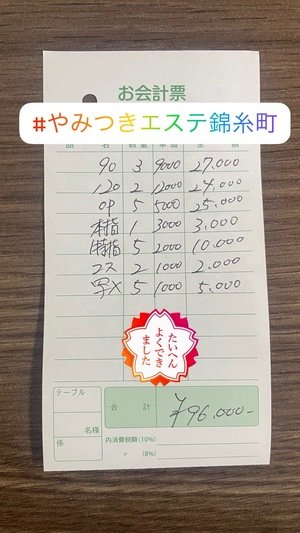 お会計票
#やみつきエステ錦糸町
品 名 数量 単価 金 額
90 3 9000 27.000
120 2 12000 24.000
OP 5 5000 25.000
本指 1 3000 3.000
特指 5 2000 10.000
コス 2 1000 2.000
写メ 5 1000 5.000
たいへん
よくでき
ました
テーブル
名様
係
合 計 ¥96.000-
内消費税額(10%)
〃 (8%)